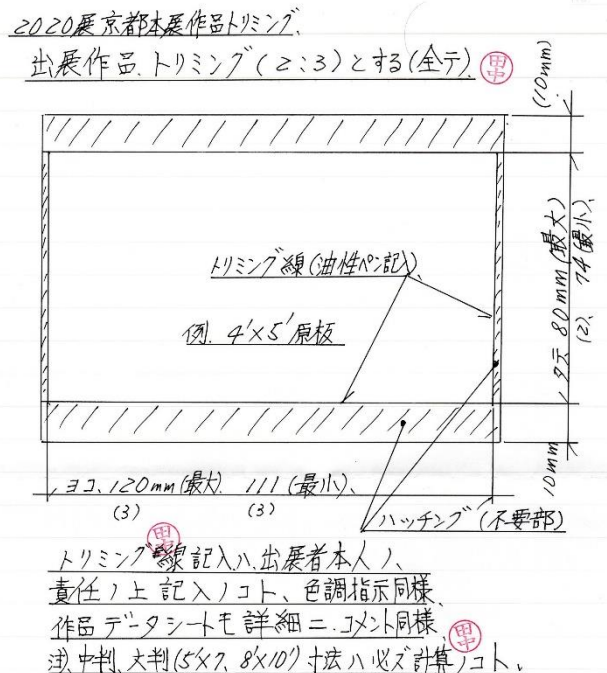 2020展京都本展作品トリミング、
出展作品、トリミング(2:3)とする(全テ)、
田中
(10mm)
トリミング線(油性ペン記入)、
例、4'×5'原板
タテ 80mm(最大)
(2)、74(最小)、
10mm
ヨコ、120mm(最大)、111(最小)、
(3) (3)
ハッチング(不要部)
田中
トリミング線記入ハ、出展者本人ノ、
責任ノ上記入ノコト、色調指示同様、
作品データシートモ詳細ニ、コメント同様、
田中
注)、中判、大判(5'×7'、8'×10')寸法ハ必ズ計算ノコト、